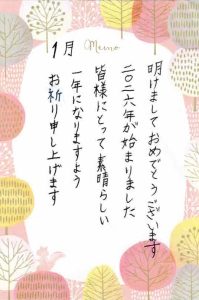 1月 Memo
明けましておめでとうございます
二〇二六年が始まりました
皆様にとって素晴らしい
一年になりますよう
お祈り申し上げます